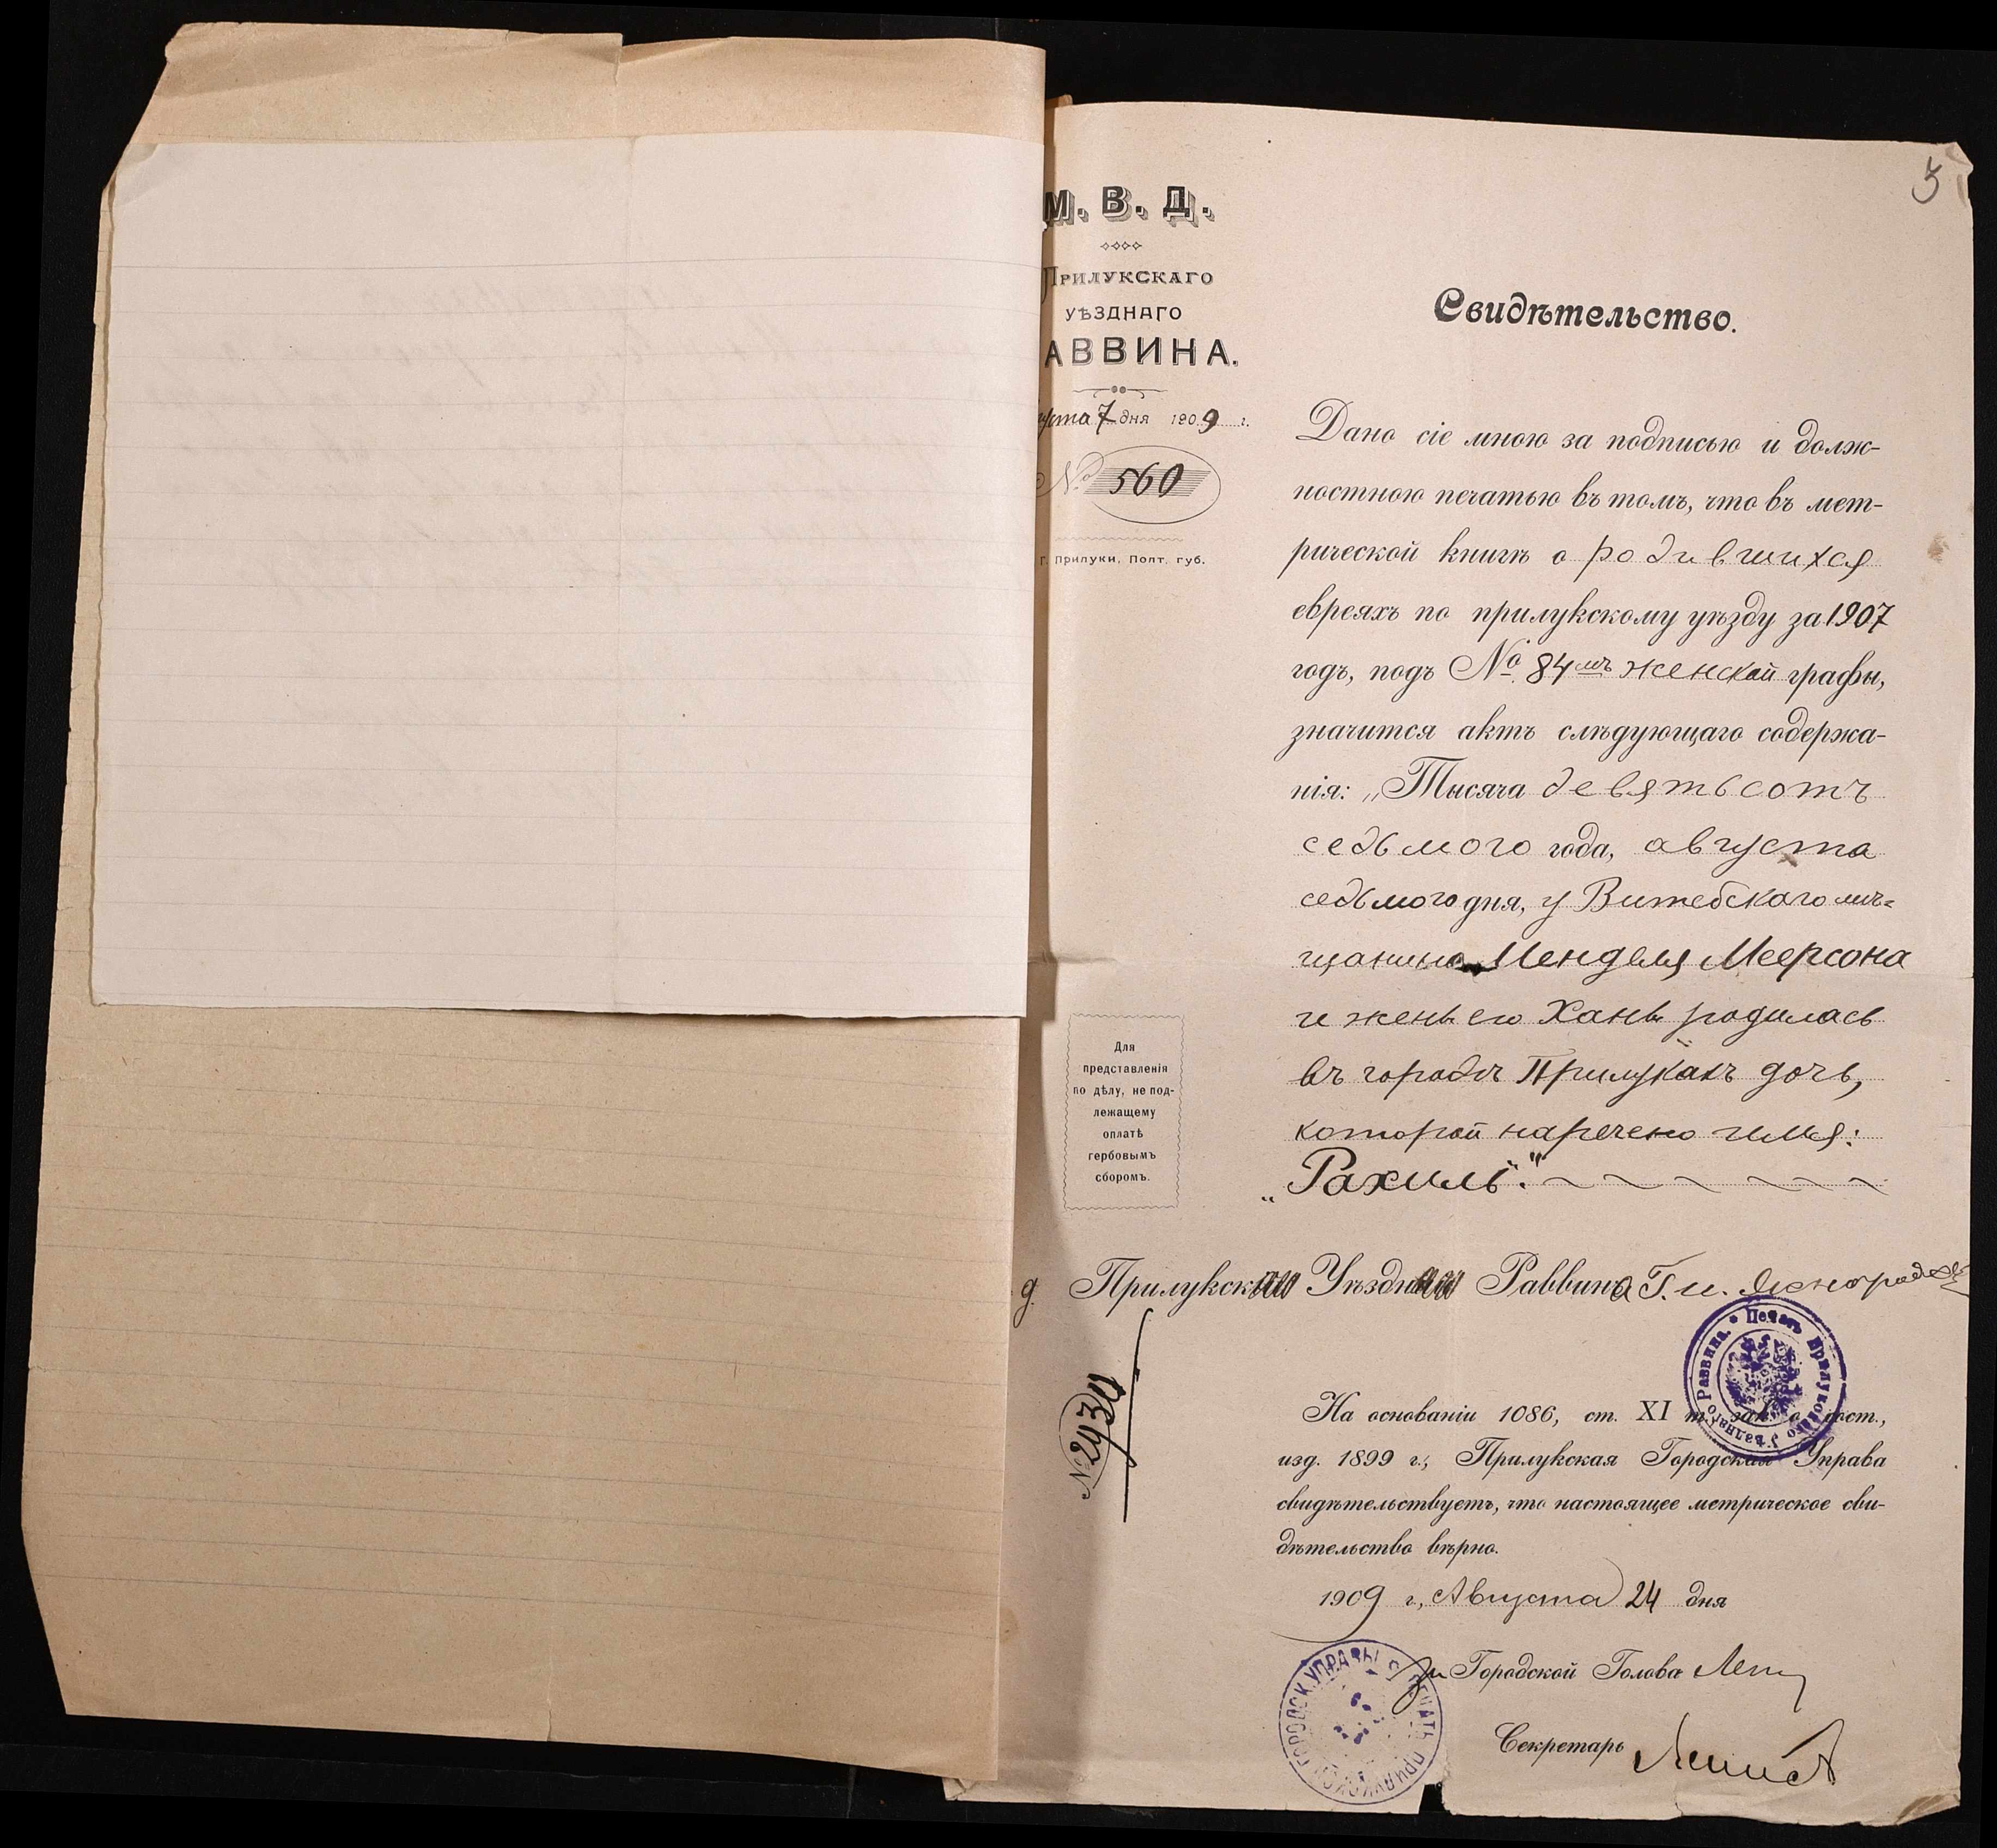 5
М. В. Д.
Прилукскаго
уѣзднаго
АВВИНА.
уста 7 дня 1909 г.
№ 560
г. Прилуки, Полт. губ.
Свидѣтельство.
Дано сіе мною за подписью и долж-
ностною печатью въ томъ, что въ мет-
рической книгѣ о родившихся
евреяхъ по прилукскому уѣзду за 1907
годъ, подъ № 84мъ женской графы,
значится актъ слѣдующаго содержа-
нія: „Тысяча девятьсотъ
седьмого года, августа
седьмого дня, у Витебскаго мѣ=
щанина Менделя Меерсона
и жены его Ханы родилась
въ городѣ Прилукахъ дочь,
которой наречено имя:
„Рахиль".
Для
представленія
по дѣлу, не под-
лежащему
оплатѣ
гербовымъ
сборомъ.
д. Прилукск Уѣздн Раввина Г. И.
Печать Прилукскаго Уѣзднаго Раввина.
№ 2934
На основаніи 1086, ст. XI т. зак. о сост.,
изд. 1899 г., Прилукская Городская Управа
свидѣтельствуетъ, что настоящее метрическое сви-
дѣтельство вѣрно.
1909 г., Августа 24 дня
За Городской Голова
Секретарь
ПЕЧАТЬ ПРИЛУКСКОЙ ГОРОДСК. УПРАВЫ